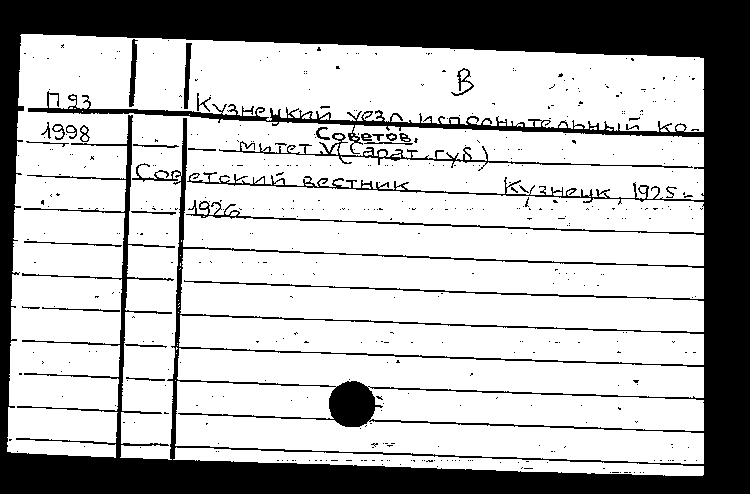 В
П 93 Кузнецкий уезд. исполнительный ко-
1998 Советов.
митет V (Сарат. губ)
Советский вестник Кузнецк, 1925-
1926